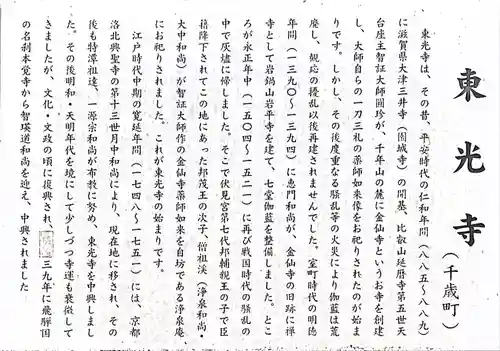 東光寺
(千歳町)
東光寺は、その昔、平安時代の仁和年間(八八五~八八九)
に滋賀県大津三井寺(園城寺)の開基、比叡山延暦寺第五世天
台座主智証大師圓珍が、千年山の麓に金仙寺というお寺を創建
し、大師自らの一刀三礼の薬師如来像をお祀りされたのが始ま
りです。しかし、その後度重なる騒乱等の火災により伽藍は荒
廃し、観応の擾乱以後再建されませんでした。室町時代の明徳
年間(一三九〇~一三九四)に惠門和尚が、金仙寺の旧跡に禅
寺として岩鍋山岩平寺を建て、七堂伽藍を整備しました。とこ
ろが永正年中(一五〇四~一五二一)に再び戦国時代の騒乱の
中で灰燼に帰しました。そこで伏見宮第七代邦輔親王の子で臣
籍降下されてこの地にあった邦茂王の次子、僧祖渓(浄泉和尚・
大中和尚)が智証大師作の金仙寺薬師如来を自坊である浄泉庵
にお祀りされました。これが東光寺の始まりです。
江戸時代中期の寛延年間(一七四八~一七五一)には、京都
洛北興聖寺の第十三世月中和尚により、現在地に移され、その
後も特潭祖達、一源宗和尚が布教に努め、東光寺を中興しまし
た。その後明和・天明年代を境にして少しづつ寺運も衰微して
きましたが、文化・文政の頃に復興され、三九年に飛騨国
の名刹本覚寺から智瑛道和尚を迎え、中興されました